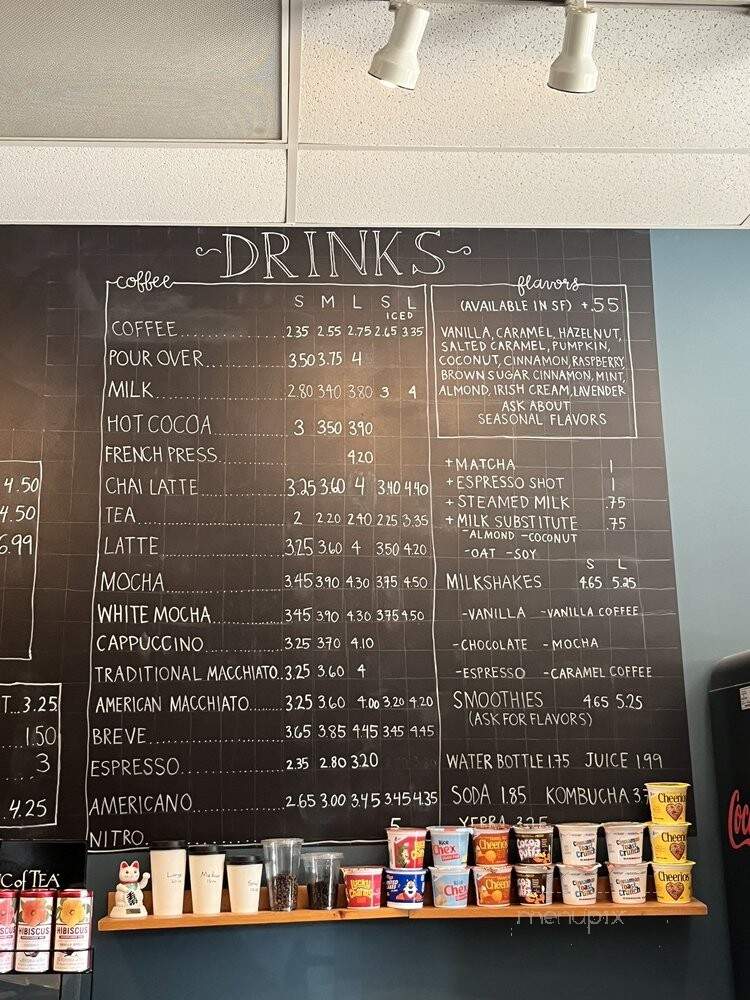 ~DRINKS~
coffee
S M L S L
ICED
COFFEE 2.35 2.55 2.75 2.65 3.35
POUR OVER 3.50 3.75 4
MILK 2.80 3.40 3.80 3 4
HOT COCOA 3 3.50 3.90
FRENCH PRESS 4.20
CHAI LATTE 3.25 3.60 4 3.40 4.40
TEA 2 2.20 2.40 2.25 3.35
LATTE 3.25 3.60 4 3.50 4.20
MOCHA 3.45 3.90 4.30 3.75 4.50
WHITE MOCHA 3.45 3.90 4.30 3.75 4.50
CAPPUCCINO 3.25 3.70 4.10
TRADITIONAL MACCHIATO 3.25 3.60 4
AMERICAN MACCHIATO 3.25 3.60 4.00 3.20 4.20
BREVE 3.65 3.85 4.45 3.45 4.45
ESPRESSO 2.35 2.80 3.20
AMERICANO 2.65 3.00 3.45 3.45 4.35
NITRO 5
flavors
(AVAILABLE IN SF) +.55
VANILLA, CARAMEL, HAZELNUT,
SALTED CARAMEL, PUMPKIN,
COCONUT, CINNAMON, RASPBERRY
BROWN SUGAR CINNAMON, MINT,
ALMOND, IRISH CREAM, LAVENDER
ASK ABOUT
SEASONAL FLAVORS
+MATCHA 1
+ESPRESSO SHOT 1
+STEAMED MILK .75
+MILK SUBSTITUTE .75
-ALMOND -COCONUT
-OAT -SOY
S L
MILKSHAKES 4.65 5.25
-VANILLA -VANILLA COFFEE
-CHOCOLATE -MOCHA
-ESPRESSO -CARAMEL COFFEE
SMOOTHIES 4.65 5.25
(ASK FOR FLAVORS)
WATER BOTTLE 1.75 JUICE 1.99
SODA 1.85 KOMBUCHA 3.7
YERBA 3.25
4.50
4.50
6.99
T...3.25
1.50
3
4.25
C of TEA
HIBISCUS
HIBISCUS
Large
Medium
Small
Lucky Charms
Rice Chex
Cheerios
Cocoa Puffs
Cinnamon Toast Crunch
Cinnamon Toast Crunch
Cheerios
Cheerios
Lucky Charms
Rice Chex
Cheerios
Cocoa Puffs
Cinnamon Toast Crunch
Cinnamon Toast Crunch
Cheerios
Coc
menupix